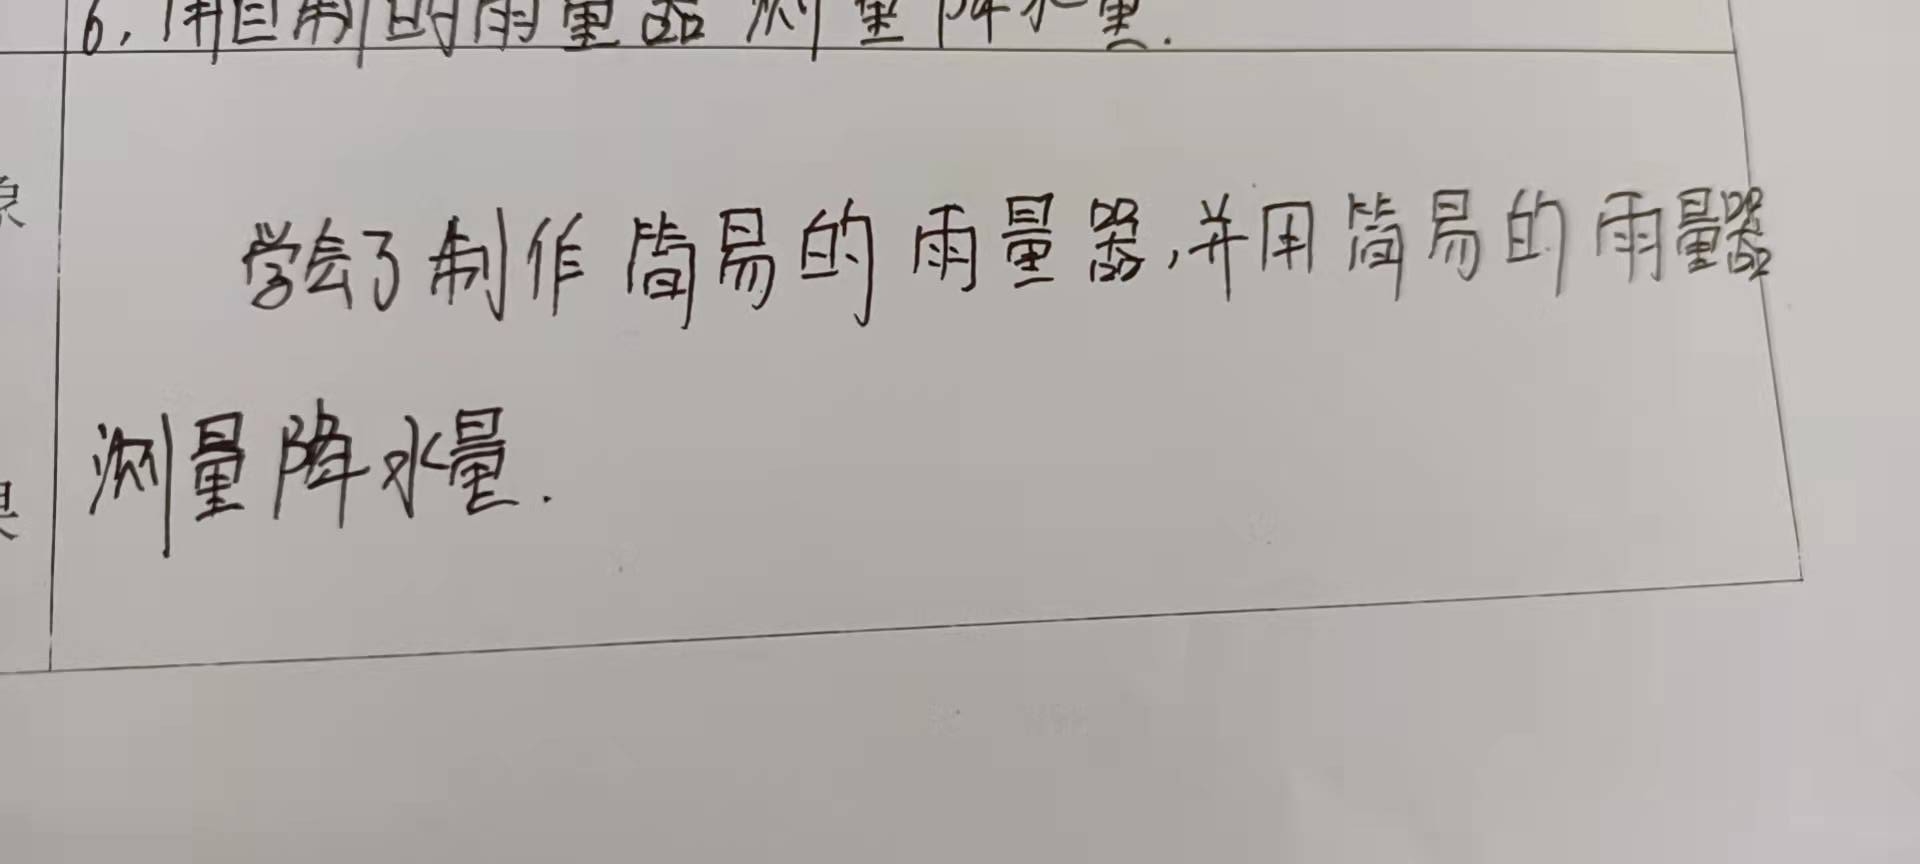 6. 用自制的雨量器测量降水量.
学会了制作简易的雨量器,并用简易的雨量器
测量降水量.